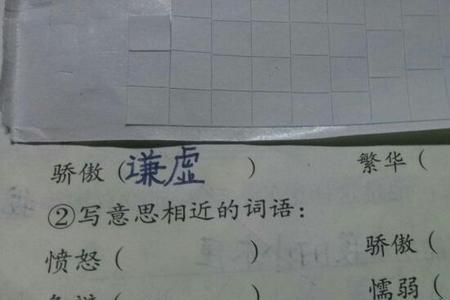 骄傲（谦虚）　繁华（
②写意思相近的词语：
愤怒（　　）　骄傲（
懦弱（